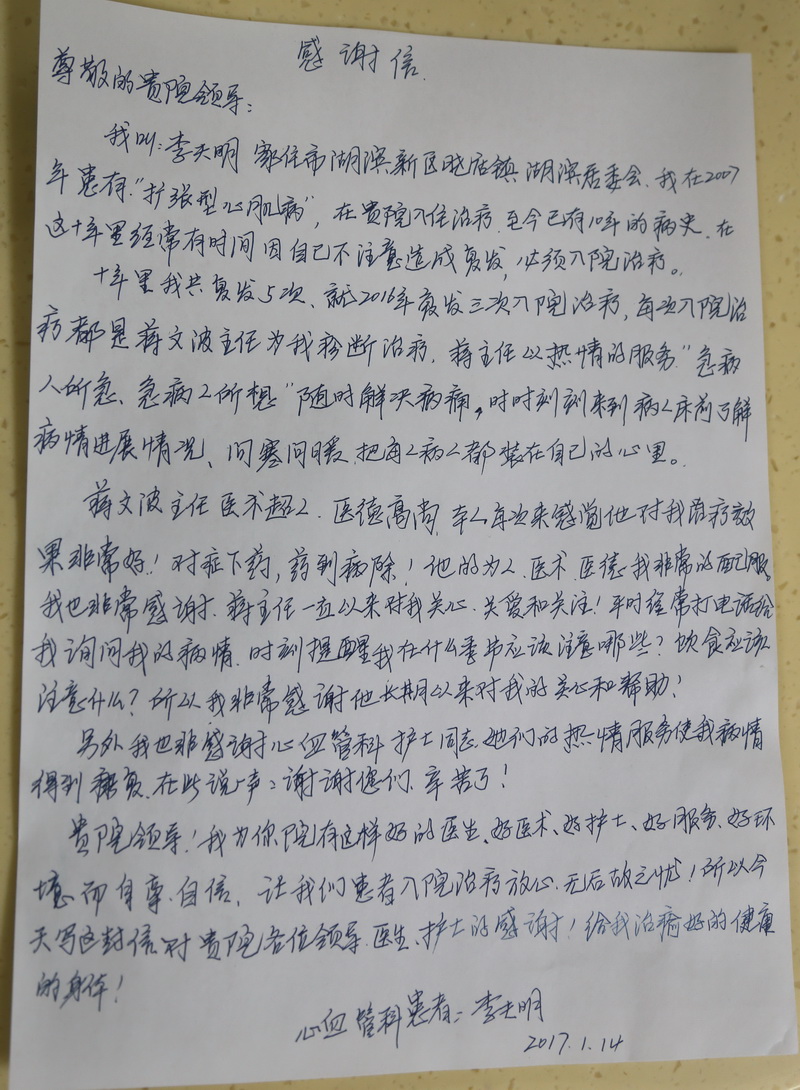 感谢信.
尊敬的贵院领导:
我叫:李天明 家住市湖滨新区晓店镇湖滨居委会、我在2007
年患有“扩张型心肌病”,在贵院入住治疗.至今已有10年的病史.在
这十年里经常有时间因自己不注意造成复发,必须入院治疗。
十年里我共复发5次、就2016年复发三次入院治疗,每次入院治
疗都是蒋文波主任为我诊断治疗.蒋主任以热情的服务“急病
人所急、急病人所想”随时解决病痛,时时刻刻来到病人床前了解
病情进展情况、问寒问暖.把每人病人都装在自己的心里。
蒋文波主任医术超人.医德高尚,本人每次来感觉他对我治疗效
果非常好!对症下药,药到病除!他的为人.医术.医德我非常的配服
我也非常感谢.蒋主任一直以来对我关心.关爱和关注!平时经常打电话给
我询问我的病情.时刻提醒我在什么季节应该注意哪些?饮食应该
注意什么?所以我非常感谢他长期以来对我的关心和帮助!
另外我也非感谢心血管科护士同志.她们的热情服务使我病情
得到康复.在此说一声:谢谢您们.辛苦了!
贵院领导!我为你院有这样好的医生、好医术、好护士、好服务、好环
境而自豪.自信,让我们患者入院治疗放心.无后故之忧!所以今
天写这封信对贵院各位领导.医生、护士的感谢!给我治瘉好的健康
的身体!
心血管科患者:李天明
2017.1.14